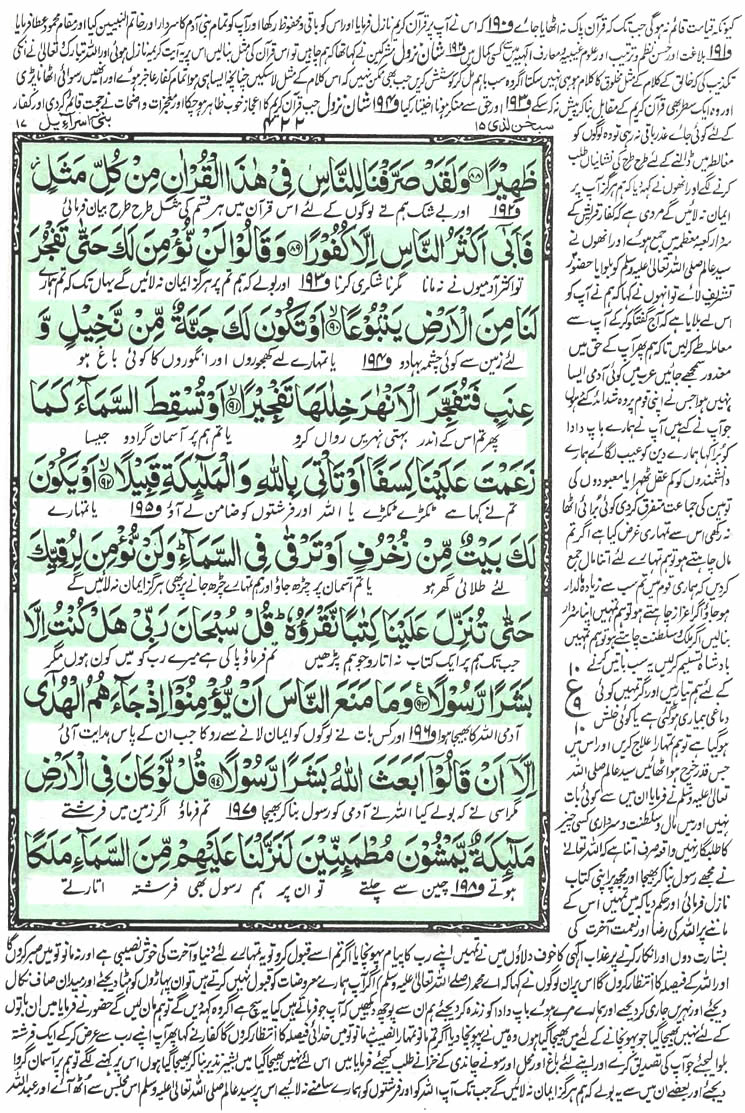 کیونکہ قیامت قائم نہ ہوگی جب تک کہ قرآن پاک نہ اٹھایا جائے و۱۹۰ کہ اس نے آپ پر قرآن کریم نازل فرمایا اور اس کو باقی و محفوظ رکھا اور آپ کو تمام بنی آدم کا سردار اور خاتم النبیین کیا اور مقام محمود عطا فرمایا
و۱۹۱ بلاغت اور حسن نظم و ترتیب اور علوم غیبیہ و معارف الٰہیہ میں سے کسی کمال میں و۱۹۲ شان نزول مشرکین نے کہا تھا کہ ہم چاہیں تو اس قرآن کی مثل بنالیں اس پر یہ آیت کریمہ نازل ہوئی اور اللہ تبارک و تعالیٰ نے انکی
تکذیب کی کہ خالق کے کلام کے مثل مخلوق کا کلام ہو ہی نہیں سکتا اگر وہ سب باہم مل کر کوشش کریں جب بھی ممکن نہیں کہ اس کلام کے مثل لاسکیں چنانچہ ایسا ہی ہوا تمام کفار عاجز ہوئے اور انھیں رسوائی اٹھانا پڑی
اور وہ ایک سطر بھی قرآن کریم کے مقابل بنا کر پیش نہ کرسکے و۱۹۳ اور حق سے منکر ہونا اختیار کیا و۱۹۴ شان نزول جب قرآن کریم کا اعجاز خوب ظاہر ہوچکا اور معجزات واضحات نے حجت قائم کردی اور کفار
سبحٰن الذی ۱۵
۴۲۲
بنی اسرآءیل ۱۷
ظَهِیْرًا ﴿۸۸﴾ وَلَقَدْ صَرَّفْنَا لِلنَّاسِ فِیْ هٰذَا الْقُرْاٰنِ مِنْ كُلِّ مَثَلٍ
و۱۹۲ اور بے شک ہم نے لوگوں کے لئے اس قرآن میں ہر قسم کی مثل طرح طرح بیان فرمائی
فَاَبٰۤی اَكْثَرُ النَّاسِ اِلَّا كُفُوْرًا ﴿۸۹﴾ وَ قَالُوْا لَنْ نُّؤْمِنَ لَكَ حَتّٰی تَفْجُرَ
تو اکثر آدمیوں نے نہ مانا مگر ناشکری کرنا و۱۹۳ اور بولے کہ ہم تم پر ہرگز ایمان نہ لائیں گے یہاں تک کہ تم ہمارے
لَنَا مِنَ الْاَرْضِ یَنْۢبُوْعًا ﴿۹۰﴾ اَوْ تَكُوْنَ لَكَ جَنَّةٌ مِّنْ نَّخِیْلٍ وَّ
لئے زمین سے کوئی چشمہ بہا دو و۱۹۴ یا تمہارے لیے کھجوروں اور انگوروں کا کوئی باغ ہو
عِنَبٍ فَتُفَجِّرَ الْاَنْهٰرَ خِلٰلَهَا تَفْجِیْرًا ﴿۹۱﴾ اَوْ تُسْقِطَ السَّمَآءَ كَمَا
پھر تم اس کے اندر بہتی نہریں رواں کرو یا تم ہم پر آسمان گرا دو جیسا
زَعَمْتَ عَلَیْنَا كِسَفًا اَوْ تَاْتِیَ بِاللّٰهِ وَ الْمَلٰٓىِٕكَةِ قَبِیْلًا ﴿۹۲﴾ اَوْ یَكُوْنَ
تم نے کہا ہے ٹکڑے ٹکڑے یا اللہ اور فرشتوں کو ضامن لے آؤ و۱۹۵ یا تمہارے
لَكَ بَیْتٌ مِّنْ زُخْرُفٍ اَوْ تَرْقٰی فِی السَّمَآءِ وَ لَنْ نُّؤْمِنَ لِرُقِیِّكَ
لئے طلائی گھر ہو یا تم آسمان پر چڑھ جاؤ اور ہم تمہارے چڑھ جانے پر بھی ہرگز ایمان نہ لائیں گے
حَتّٰی تُنَزِّلَ عَلَیْنَا كِتٰبًا نَّقْرَؤُهٗ قُلْ سُبْحَانَ رَبِّیْ هَلْ كُنْتُ اِلَّا
جب تک ہم پر ایک کتاب نہ اتارو جو ہم پڑھیں تم فرماؤ پاکی ہے میرے رب کو میں کون ہوں مگر
بَشَرًا رَّسُوْلًا ﴿۹۳﴾ وَ مَا مَنَعَ النَّاسَ اَنْ یُّؤْمِنُوْۤا اِذْ جَآءَهُمُ الْهُدٰۤی
آدمی اللہ کا بھیجا ہوا و۱۹۶ اور کس بات نے لوگوں کو ایمان لانے سے روکا جب ان کے پاس ہدایت آئی
اِلَّاۤ اَنْ قَالُوْۤا اَبَعَثَ اللّٰهُ بَشَرًا رَّسُوْلًا ﴿۹۴﴾ قُلْ لَّوْ كَانَ فِی الْاَرْضِ
مگر اسی نے کہ بولے کیا اللہ نے آدمی کو رسول بنا کر بھیجا و۱۹۷ تم فرماؤ اگر زمین میں فرشتے
مَلٰٓىِٕكَةٌ یَّمْشُوْنَ مُطْمَىِٕنِّیْنَ لَنَزَّلْنَا عَلَیْهِمْ مِّنَ السَّمَآءِ مَلَكًا
ہوتے و۱۹۸ چین سے چلتے تو ان پر ہم رسول بھی فرشتہ اتارتے
کے لئے کوئی جائے عذر باقی نہ رہی تو وہ لوگوں کو
مغالطہ میں ڈالنے کے لئے طرح طرح کی نشانیاں طلب
کرنے لگے اور انھوں نے کہہ دیا کہ ہم ہرگز آپ پر
ایمان نہ لائیں گے مروی ہے کہ کفار قریش کے
سردار کعبہ معظمہ میں جمع ہوئے اور انھوں نے
سید عالم صلی اللہ تعالیٰ علیہ وسلم کو بلوایا حضور
تشریف لائے تو انہوں نے کہا کہ ہم نے آپ کو
اس لیے بلایا ہے کہ آج گفتگو کرکے آپ سے
معاملہ طے کرلیں تاکہ ہم پھر آپ کے حق میں
معذور سمجھے جائیں عرب میں کوئی آدمی ایسا
نہیں ہوا جس نے اپنی قوم پر وہ شدائد کئے ہوں
جو آپ نے کئے ہیں آپ نے ہمارے باپ دادا
کو برا کہا ہمارے دین کو عیب لگائے ہمارے
دانشمندوں کو کم عقل ٹھہرایا معبودوں کی
توہین کی جماعت متفرق کردی کوئی برائی اٹھا
نہ رکھی اس سے تمہاری غرض کیا ہے اگر تم
مال چاہتے ہو تو ہم تمہارے لئے اتنا مال جمع
کردیں کہ ہماری قوم میں تم سب سے زیادہ مالدار
ہوجاؤ اگر اعزاز چاہتے ہو تو ہم تمہیں اپنا سردار
بنالیں اگر ملک و سلطنت چاہتے ہو تو ہم تمہیں
بادشاہ تسلیم کرلیں یہ سب باتیں کرنے
کے لئے ہم تیار ہیں اور اگر تمہیں کوئی
دماغی بیماری ہوگئی ہے یا کوئی خلش
ہوگیا ہے تو ہم تمہارا علاج کریں اور اس میں
جس قدر خرچ ہو اٹھائیں سید عالم صلی اللہ
تعالیٰ علیہ وسلم نے فرمایا ان میں سے کوئی بات
نہیں اور میں مال و سلطنت و سرداری کسی چیز
کا طلبگار نہیں واقعہ صرف اتنا ہے کہ اللہ تعالیٰ
نے مجھے رسول بنا کر بھیجا اور مجھ پر اپنی کتاب
نازل فرمائی اور حکم دیا کہ میں تمہیں اس کے
ماننے پر اللہ کی رضا اور نعمت آخرت کی
۱۰
ع
۹
۱۰
بشارت دوں اور انکار کرنے پر عذاب الٰہی کا خوف دلاؤں میں نے تمہیں اپنے رب کا پیام پہونچایا اگر تم اسے قبول کرو تو یہ تمہارے لئے دنیا و آخرت کی خوش نصیبی ہے اور نہ مانو تو میں صبر کروں گا
اور اللہ کے فیصلہ کا انتظار کروں گا اس پر ان لوگوں نے کہا کہ اے محمد (صلی اللہ تعالیٰ علیہ وسلم) اگر آپ ہمارے معروضات کو قبول نہیں کرتے ہیں تو ان پہاڑوں کو ہٹا دیجئے اور میدان صاف نکال
دیجئے اور نہریں جاری کردیجئے اور ہمارے مرے ہوئے باپ دادا کو زندہ کردیجئے ہم ان سے پوچھ دیکھیں کہ آپ جو فرماتے ہیں کیا یہ سچ ہے اگر وہ کہہ دیں گے تو ہم مان لیں گے حضور نے فرمایا میں ان باتوں
کے لئے نہیں بھیجا گیا جو پہونچانے کے لئے میں بھیجا گیا ہوں وہ میں نے پہونچا دیا اگر تم مانو تمہارا نصیب نہ مانو تو میں خدائی فیصلہ کا انتظار کروں گا کفار نے کہا پھر آپ اپنے رب سے عرض کرکے ایک فرشتہ
بلوا لیجئے جو آپ کی تصدیق کرے اور اپنے لئے باغ اور محل اور سونے چاندی کے خزانے طلب کیجئے فرمایا میں اس لئے نہیں بھیجا گیا میں بشیر و نذیر بنا کر بھیجا گیا ہوں اس پر کہنے لگے تو ہم پر آسمان گروا
دیجئے اور بعضے ان میں سے یہ بولے کہ ہم ہرگز ایمان نہ لائیں گے جب تک آپ اللہ کو اور فرشتوں کو ہمارے سامنے نہ لایئے اس پر سید عالم صلی اللہ تعالیٰ علیہ وسلم اس مجلس سے اٹھ آئے اور عبداللہ